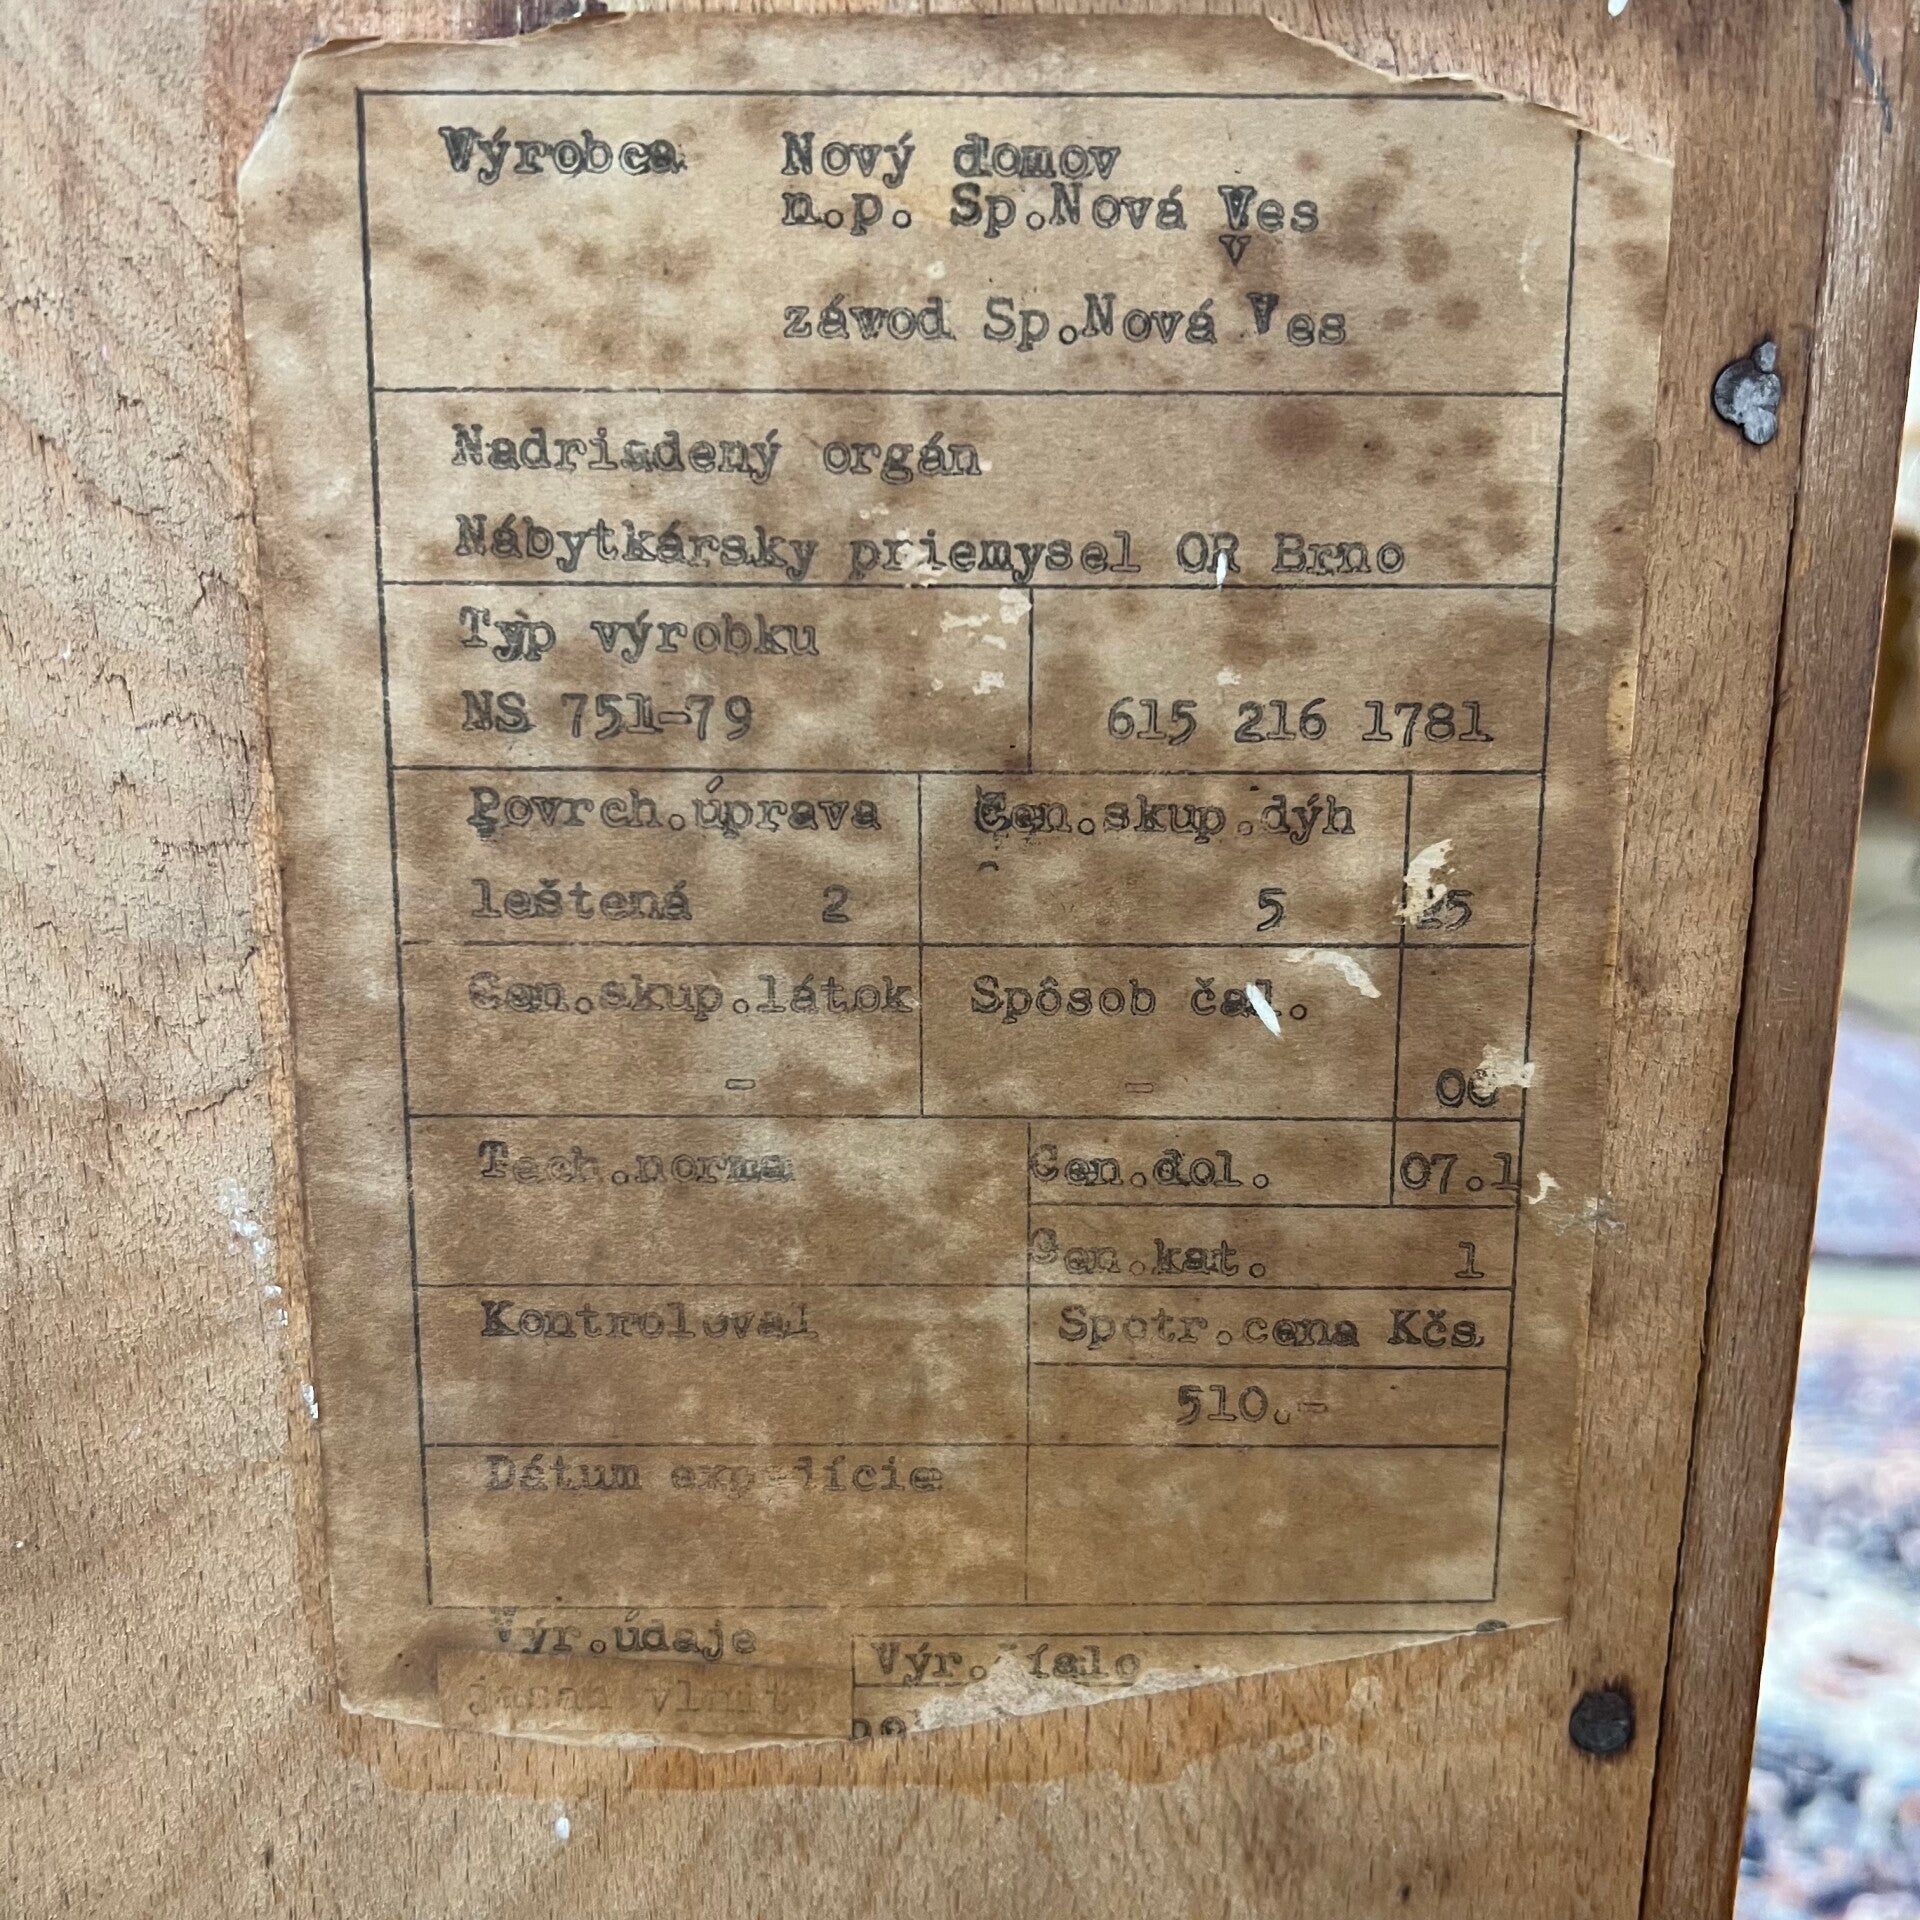 Výrobca Nový domov
n.p. Sp.Nová Ves
v
závod Sp.Nová Ves
Nadriadený orgán
Nábytkársky priemysel OR Brno
Typ výrobku
NS 751-79 615 216 1781
Povrch.úprava Cen.skup.dýh
leštená 2 5
Cen.skup.látok Spôsob čal.
- -
Tech.norma Cen.dol. 07.1
Cen.kat. 1
Kontroloval Spotr.cena Kčs
510.-
Dátum expedície
Výr.údaje Výr.číslo